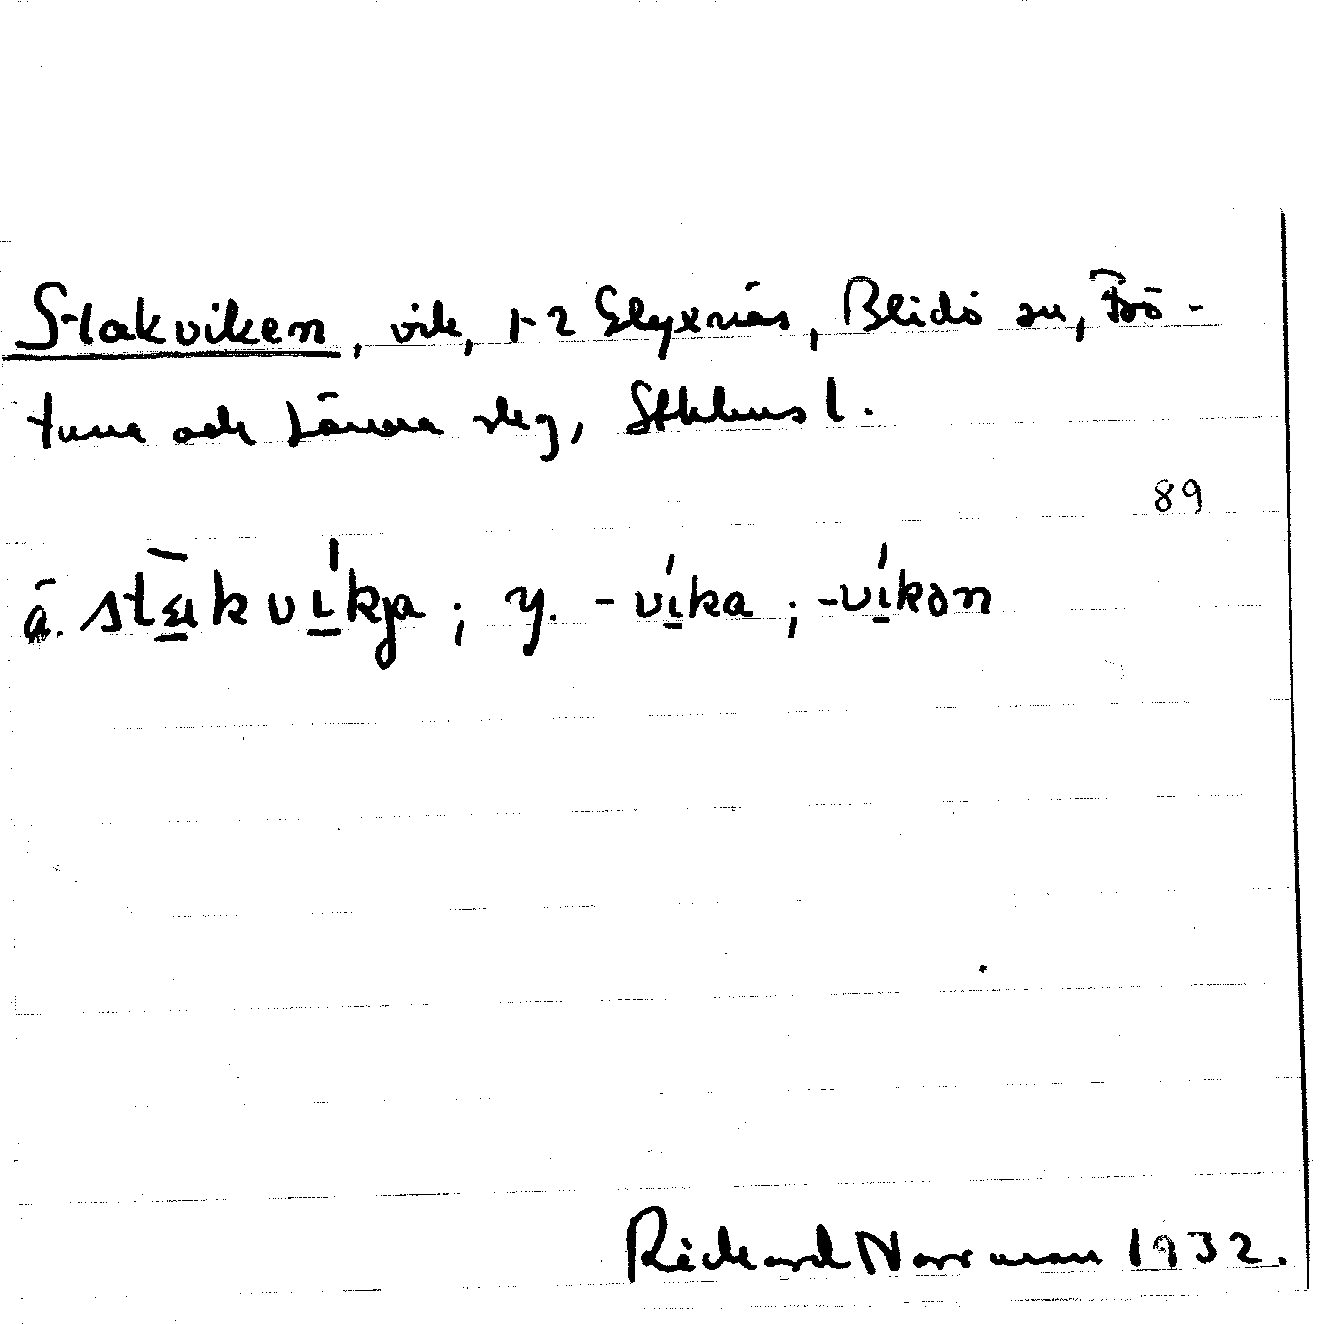 Stakviken, vik, 1-2 Glyxnäs, Blidö sn, Frö-
tuna och Länna sklg, Sthlms l.
89
ä. stäkvíkja; y. -víka; -víkən
Rickard Norrman 1932.